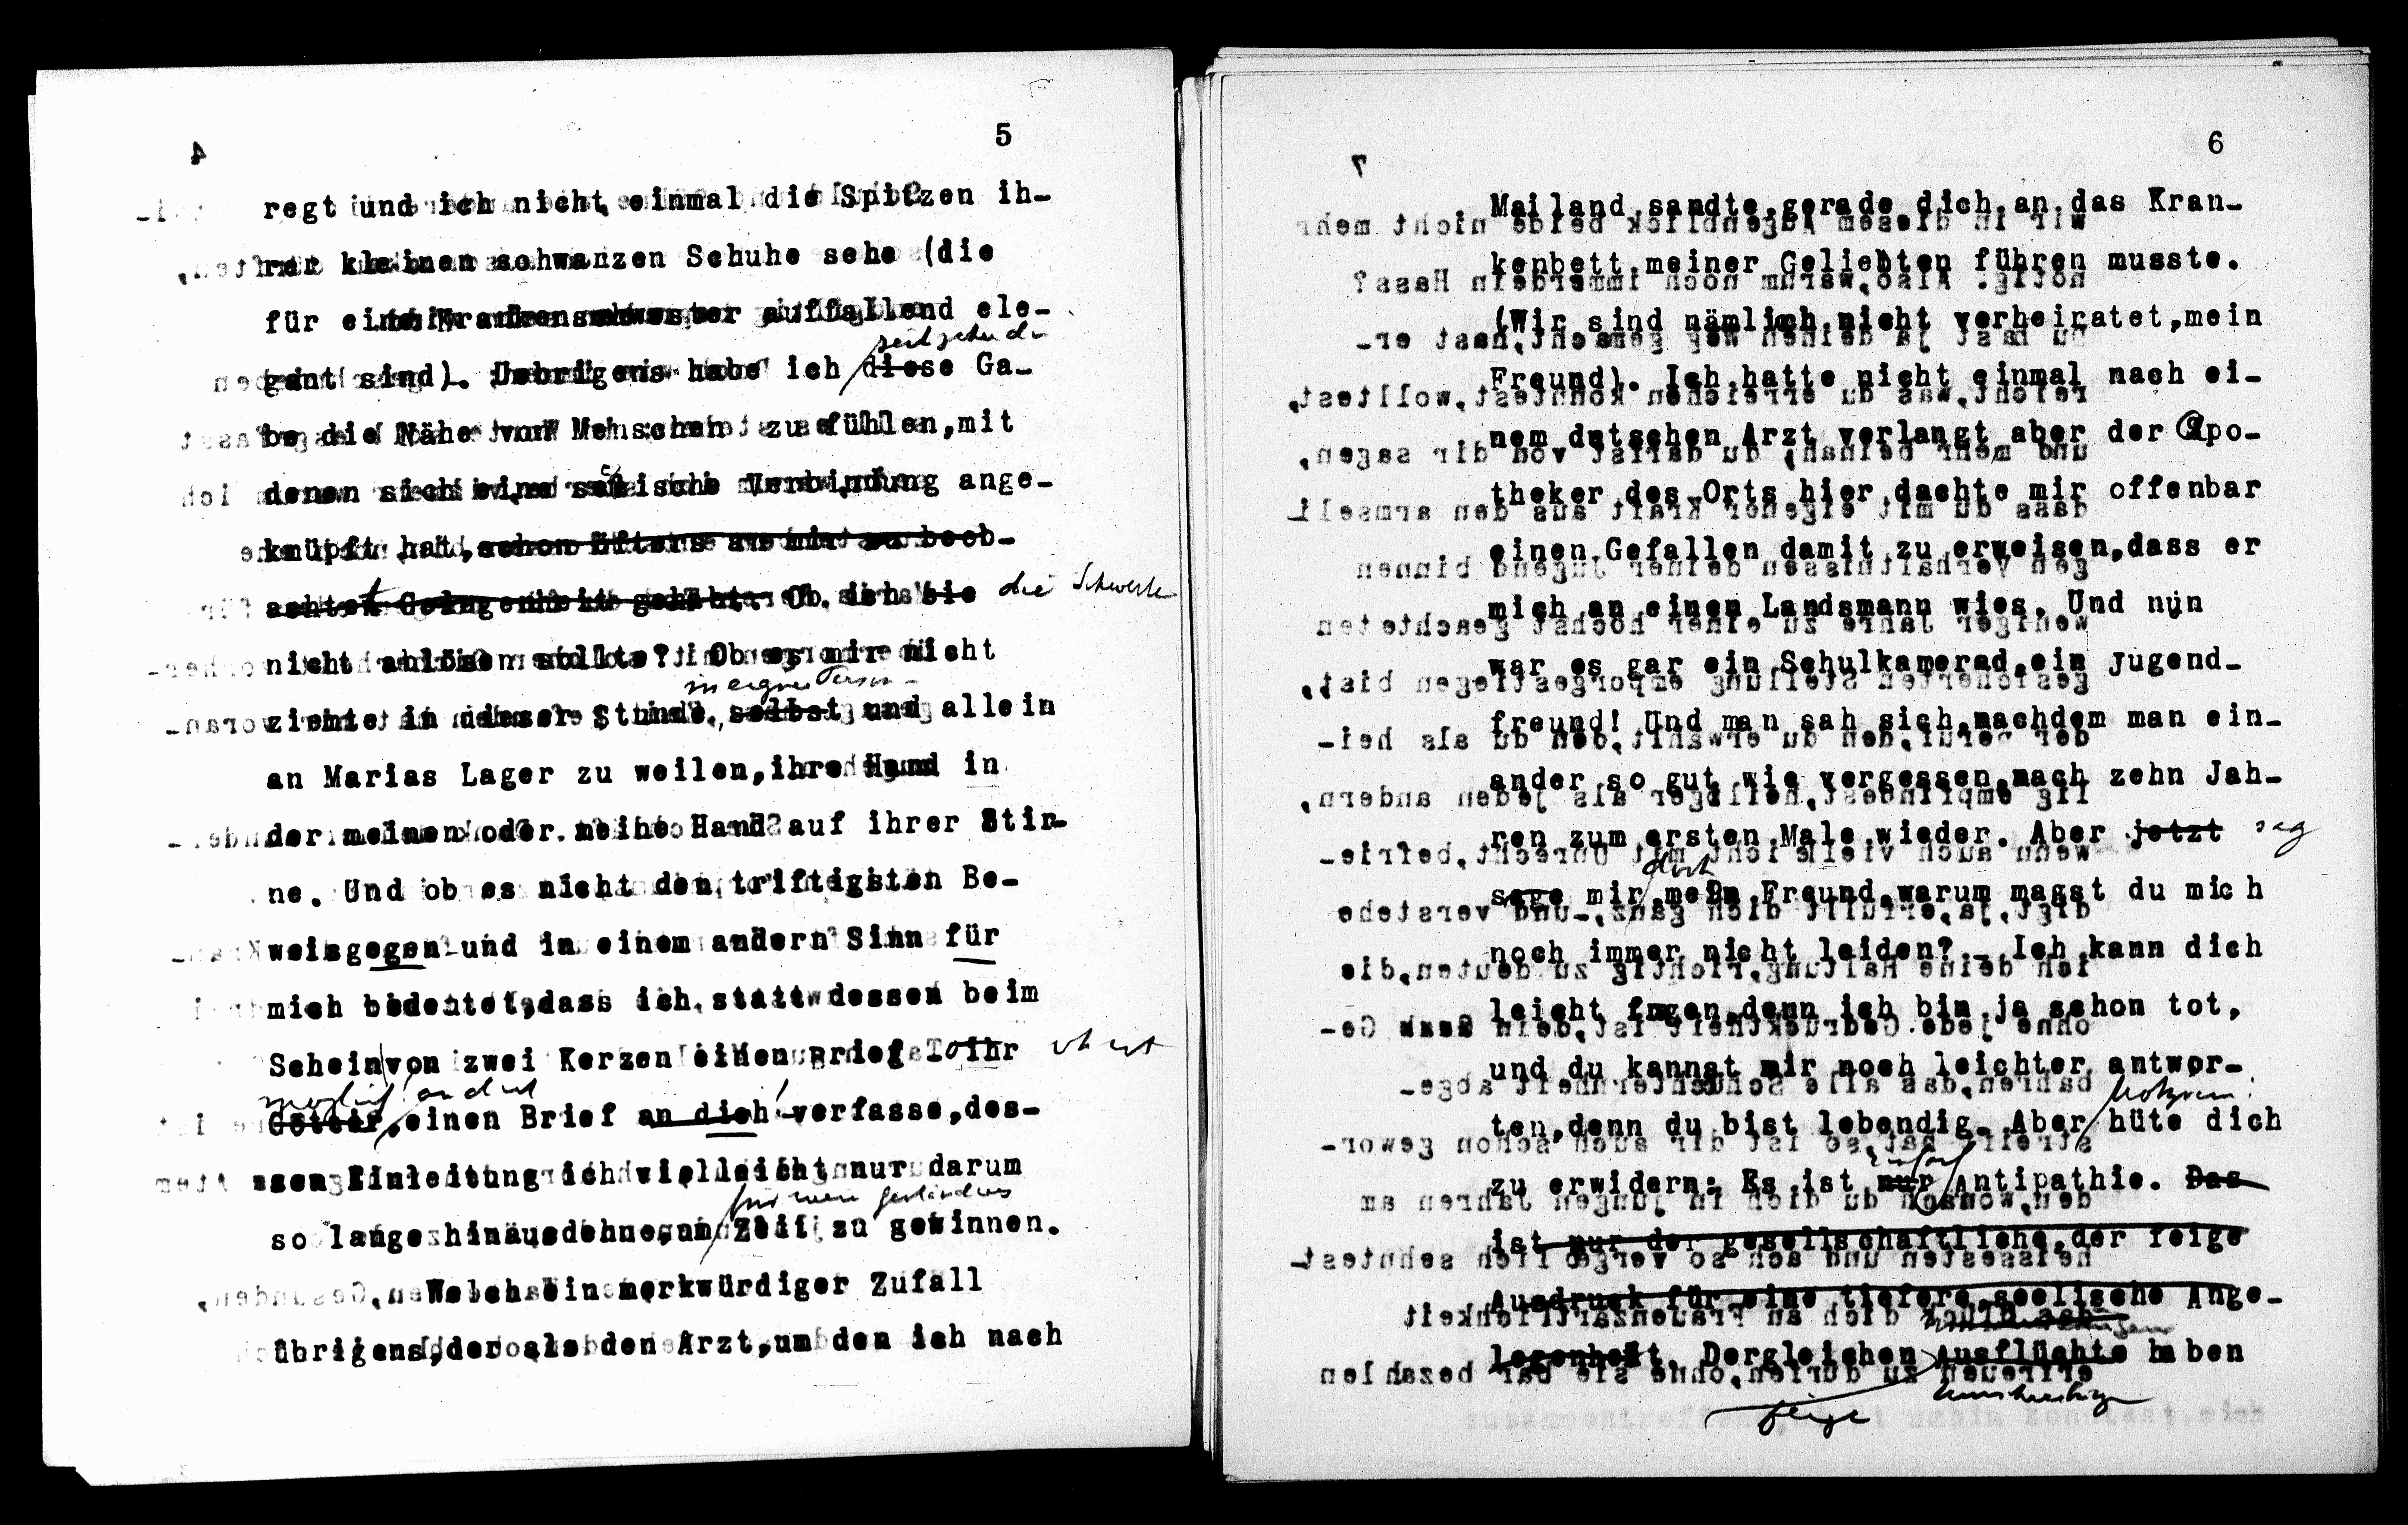 5
regt und ich nicht einmal die Spitzen ih-
rer kleinen schwarzen Schuhe sehe (die
für eine Krankenschwester auffallend ele-
gant sind). Uebrigens habe ich diese Ga-
be die Nähe von Menschen zu fühlen,mit
denen sich eine seelische Verbindung ange-
knüpft hat,schon öfters an mir zu beob-
achten Gelegenheit gehabt. Ob ich sie die Schwester
nicht ablösen sollte? Ob es mir nicht
in eigner Person
ziemte in dieser Stunde, selbst und allein
an Marias Lager zu weilen,ihre Hand in
der meinen oder meine Hand auf ihrer Stir-
ne. Und ob es nicht den triftigsten Be-
weis gegen und in einem andern Sinn für
mich bedeutet,dass ich stattdessen beim
Schein von zwei Kerzen einen Brief - o ihr
Götter,einen Brief an dich! verfasse,des-
sen Einleitung ich vielleicht nur darum
für mein Geständnis
so lange hinausdehne,um Zeit zu gewinnen.
Welch ein merkwürdiger Zufall
übrigens,der als den Arzt,um den ich nach
6
Mailand sandte,gerade dich an das Kran-
kenbett meiner Geliebten führen musste.
(Wir sind nämlich nicht verheiratet,mein
Freund). Ich hatte nicht einmal nach ei-
nem dutschen Arzt verlangt aber der Apo-
theker des Orts hier dachte mir offenbar
einen Gefallen damit zu erweisen,dass er
mich an einen Landsmann wies. Und nun
war es gar ein Schulkamerad,ein Jugend-
freund! Und man sah sich,nachdem man ein-
ander so gut wie vergessen,nach zehn Jah-
ren zum ersten Male wieder. Aber jetzt sag
doch
sage mir mein Freund,warum magst du mich
noch immer nicht leiden? - Ich kann dich
leicht fragen,denn ich bin ja schon tot,
und du kannst mir noch leichter antwor-
ten,denn du bist lebendig. Aber hüte dich
zu erwidern: Es ist nur Antipathie. Das
ist nur der gesellschaftliche,der feige
Ausdruck für eine tiefere seelische Ange-
legenheit. Dergleichen Ausflüchte haben
feige